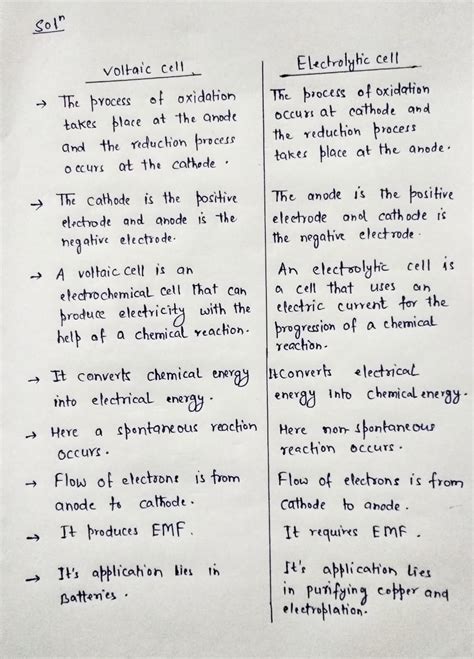 Solⁿ
Voltaic cell
→ The process of oxidation
takes place at the anode
and the reduction process
occurs at the cathode.
→ The cathode is the positive
electrode and anode is the
negative electrode.
→ A voltaic cell is an
electrochemical cell that can
produce electricity with the
help of a chemical reaction.
→ It converts chemical energy
into electrical energy.
→ Here a spontaneous reaction
occurs.
→ Flow of electrons is from
anode to cathode.
→ It produces EMF.
→ It's application lies in
Batteries.
Electrolytic cell
The process of oxidation
occurs at cathode and
the reduction process
takes place at the anode.
The anode is the positive
electrode and cathode is
the negative electrode.
An electroolytic cell is
a cell that uses an
electric current for the
progression of a chemical
reaction.
It Converts electrical
energy into Chemical energy.
Here non-spontaneous
reaction occurs.
Flow of electrons is from
Cathode to anode.
It requires EMF.
It's application lies
in purifying copper and
electroplation.